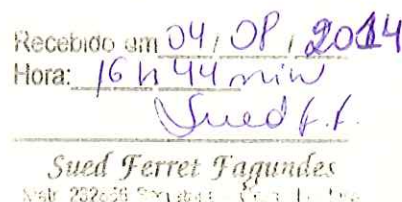 Recebido em 04 / 08 / 2014
Hora: 16 h 44 min
Sued f.f.
Sued Ferret Fagundes